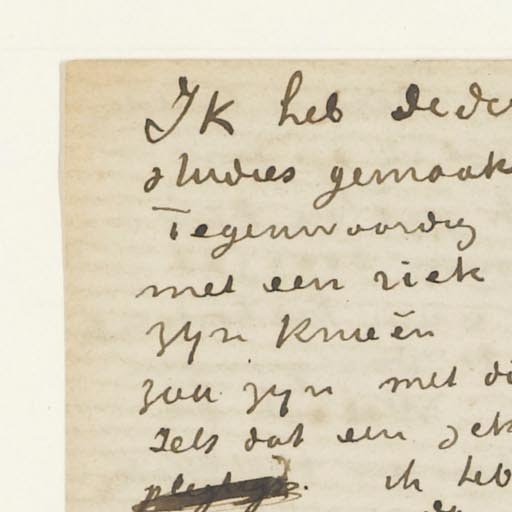 Ik heb deze
studies gemaak
Tegenwoordig
met een riek
zyn knieën
zou zyn met di
iets dat een
ik heb